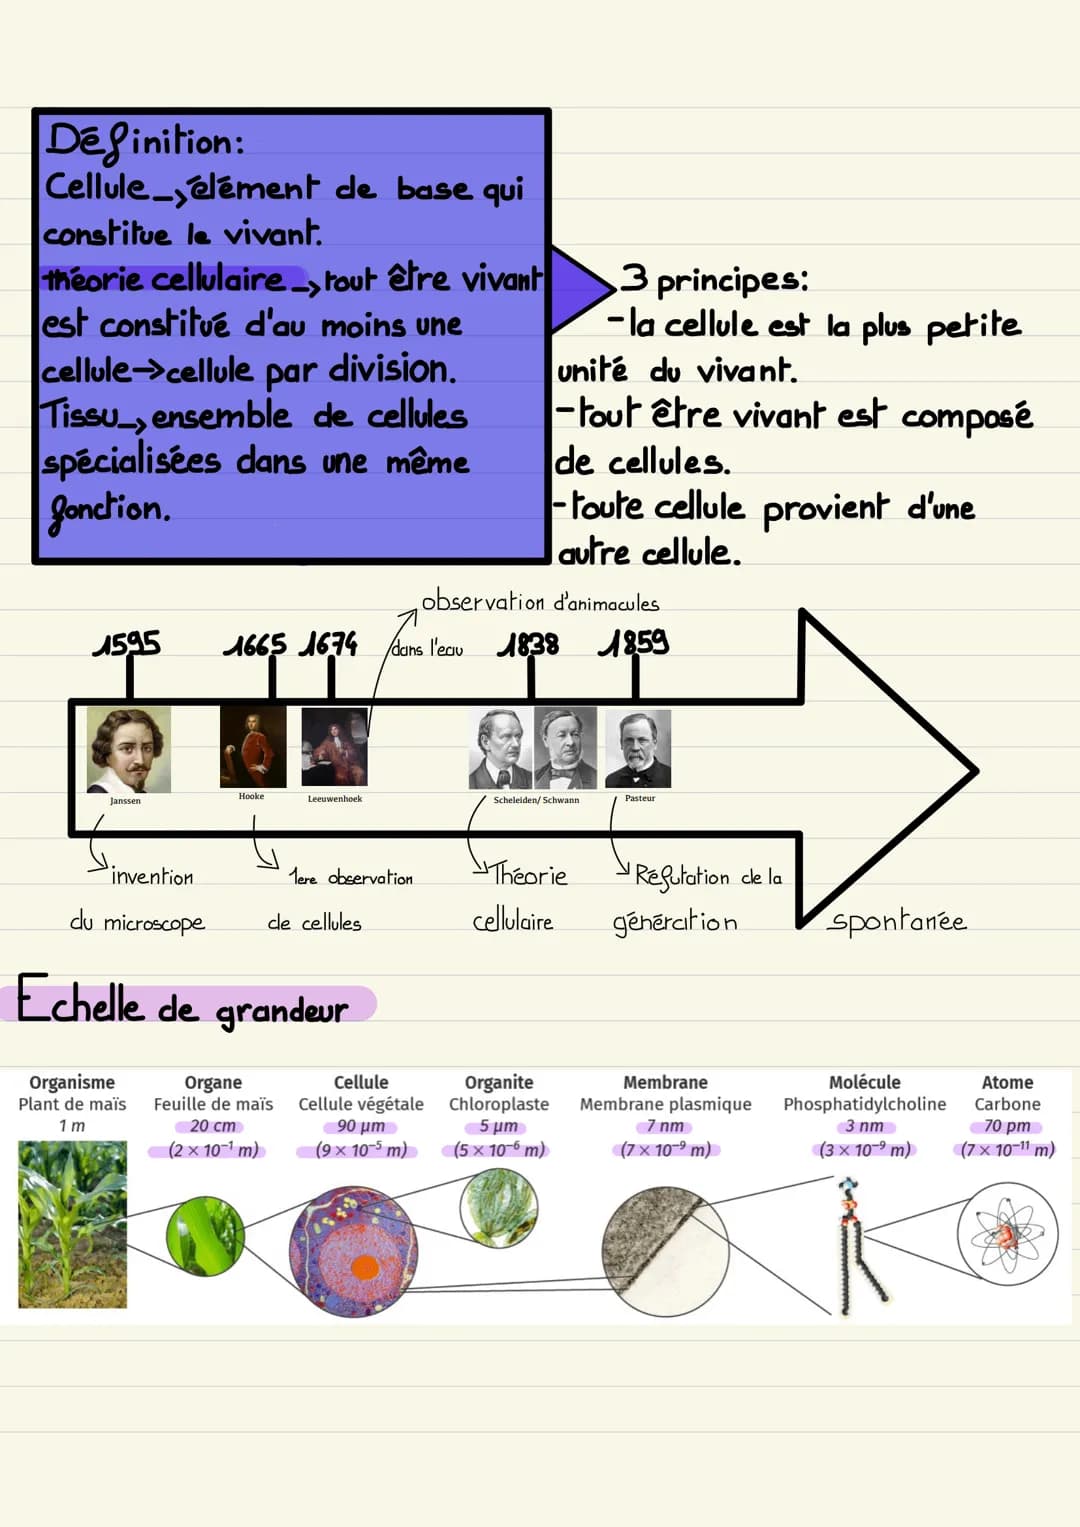 Définition:
Cellule→élément de base qui
constitue le vivant.
théorie cellulaire→tout être vivant
est constitué d'au moins une
cellule→cellule par division.
Tissu→ensemble de cellules
spécialisées dans une même
fonction.
3 principes:
-la cellule est la plus petite
unité du vivant.
-tout être vivant est composé
de cellules.
-toute cellule provient d'une
autre cellule.
observation d'animacules
dans l'eau
1595 1665 1674 1838 1859
Janssen Hooke Leeuwenhoek Scheleiden/ Schwann Pasteur
invention
du microscope
1ere observation
de cellules
Théorie
cellulaire
Réfutation de la
génération spontanée
Echelle de grandeur
Organisme
Plant de maïs
1 m
Organe
Feuille de maïs
20 cm
(2 × 10⁻¹ m)
Cellule
Cellule végétale
90 µm
(9 × 10⁻⁵ m)
Organite
Chloroplaste
5 µm
(5 × 10⁻⁶ m)
Membrane
Membrane plasmique
7 nm
(7 × 10⁻⁹ m)
Molécule
Phosphatidylcholine
3 nm
(3 × 10⁻⁹ m)
Atome
Carbone
70 pm
(7 × 10⁻¹¹ m)